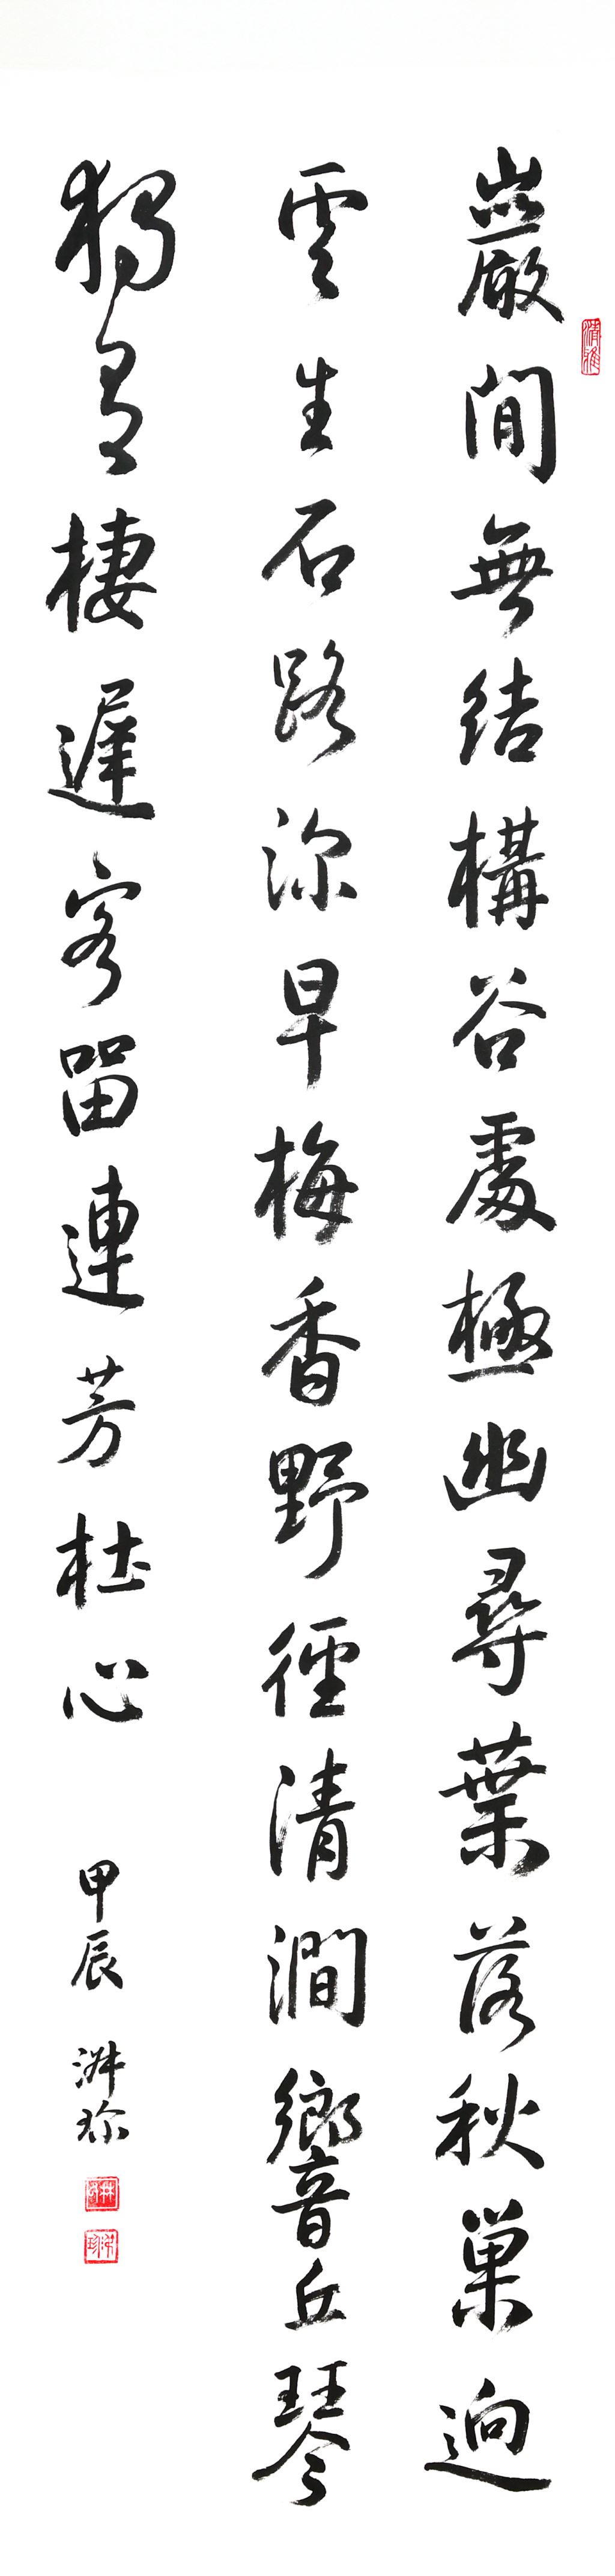 清雅
巖間無結構谷處極幽尋葉落秋巢迥
雲生石路深早梅香野徑清澗響丘琴
獨有棲遲客留連芳杜心
甲辰